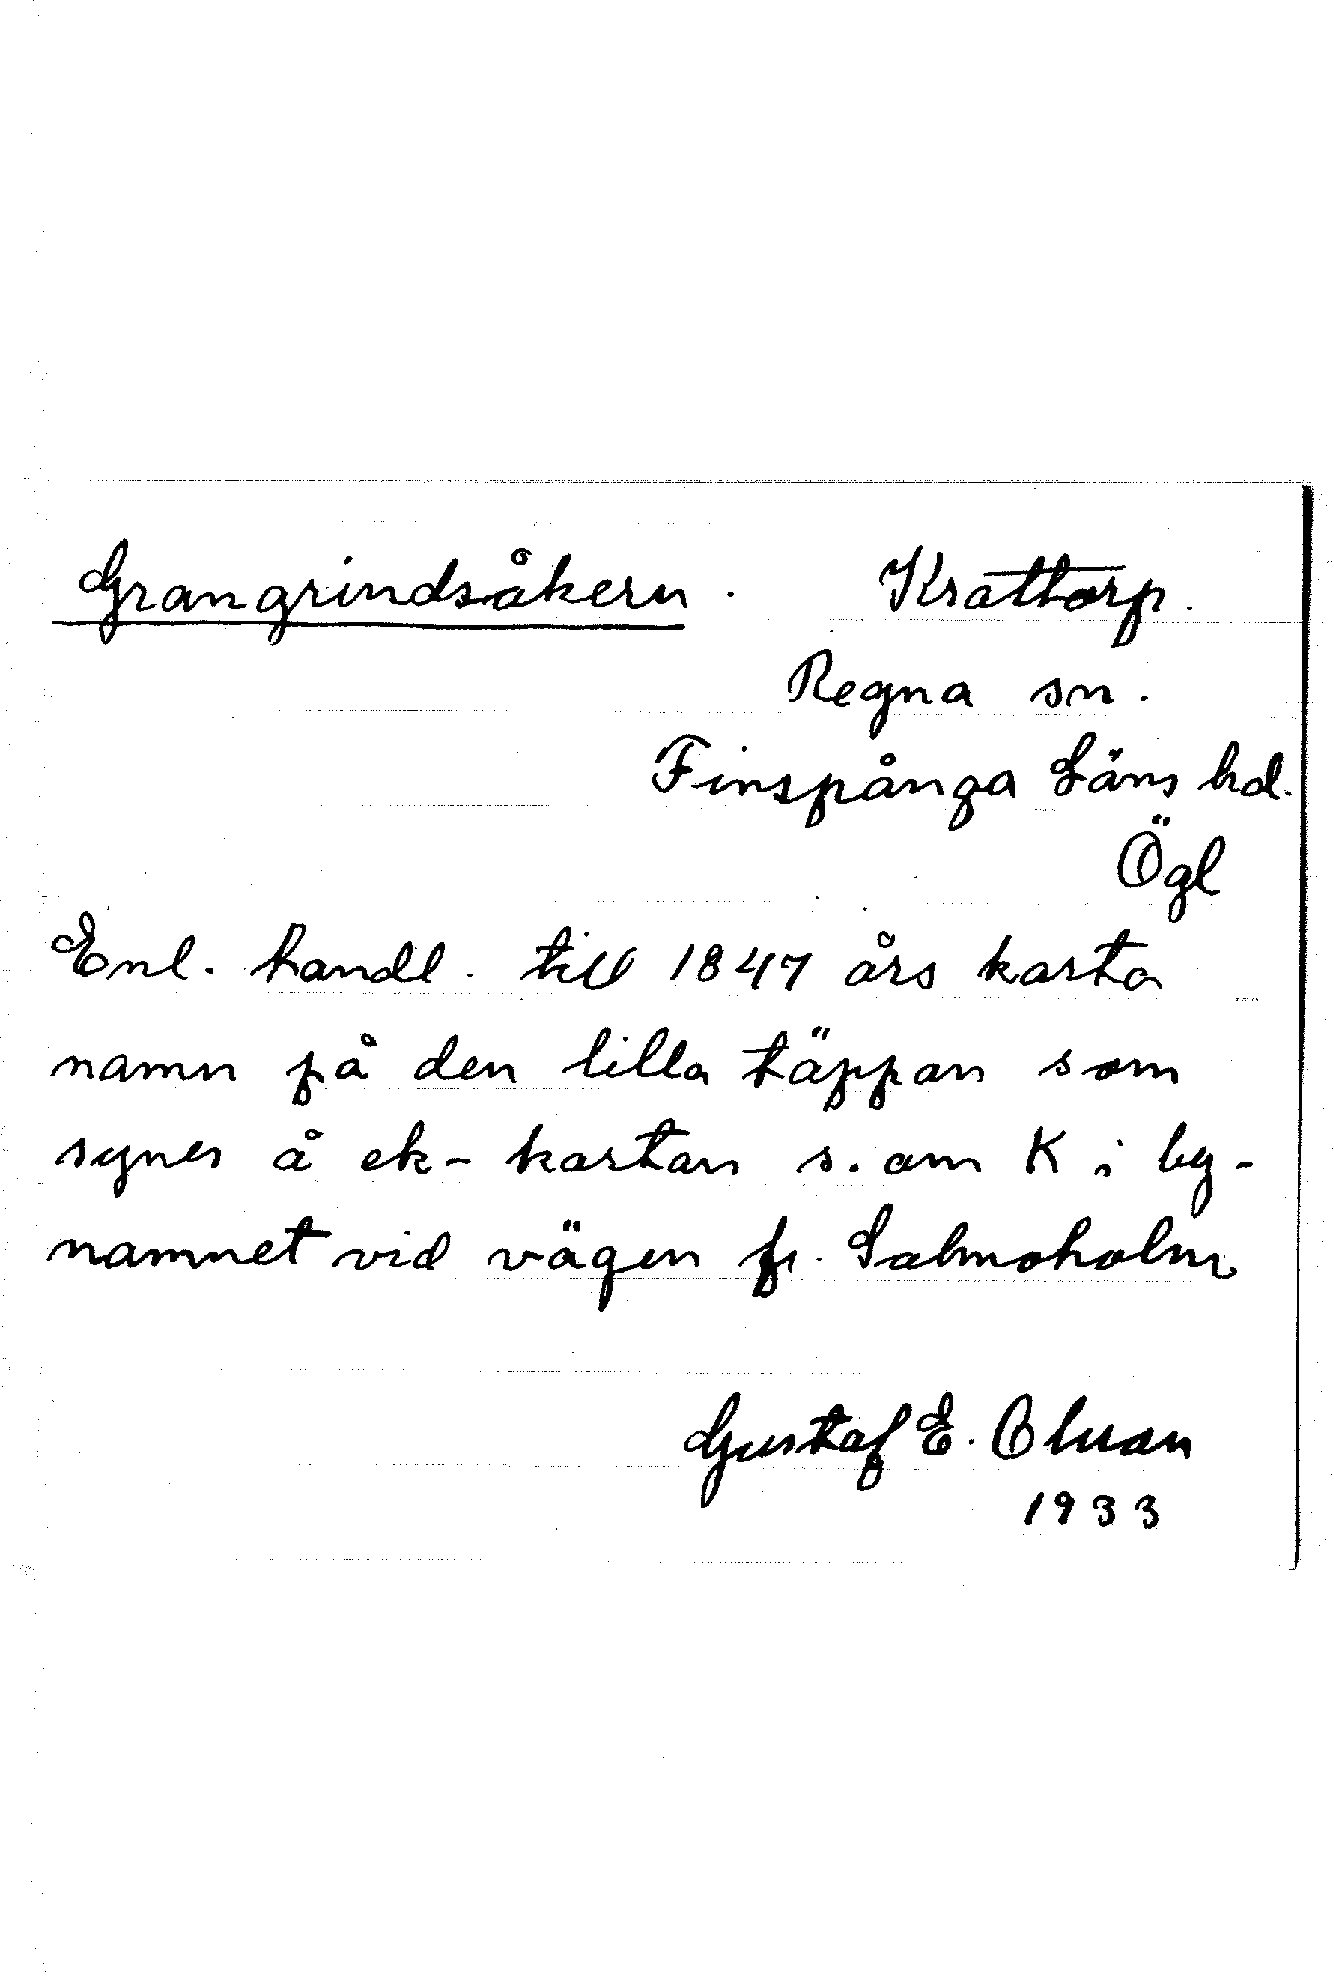 Grangrindsåkern. Krattorp.
Regna sn.
Finspånga Läns hd.
Ögl
Enl. handl. till 1847 års karta
namn på den lilla täppan som
synes å ek-kartan s. om K i by-
namnet vid vägen fr. Salmoholm
Gustaf E. Olsson
1933